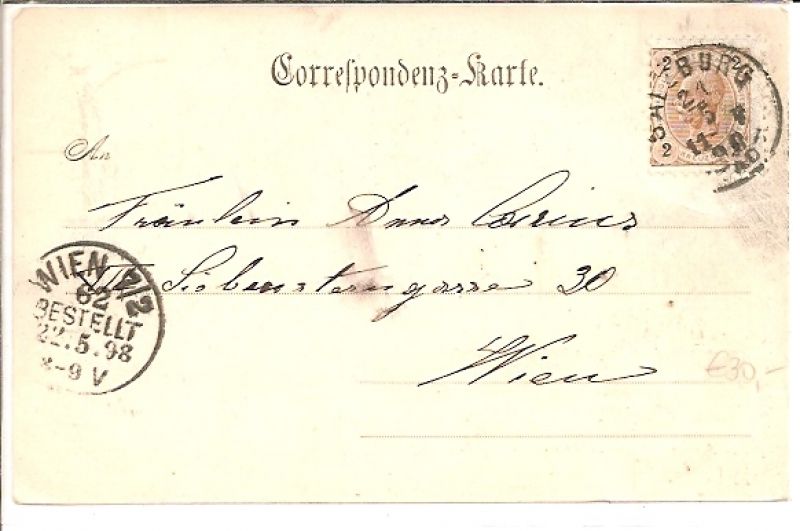 Correspondenz-Karte.
An
Fräulein Anna
VII Siebensterngasse 30
Wien
SALZBURG
2 2
2
WIEN 7/2
62
BESTELLT
22.5.98
8-9 V
€30,-